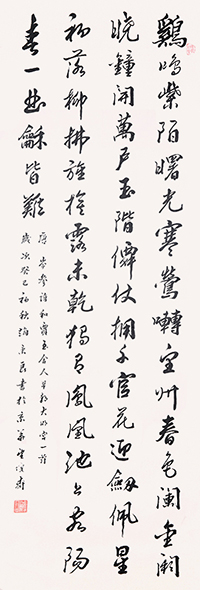 鷄鳴紫陌曙光寒鶯囀皇州春色闌金闕
曉鐘開萬戶玉階僊仗擁千官花迎劔佩星
初落柳拂旌旗露未乾獨有鳳凰池上客陽
春一曲龢皆難
岑參詩和賈至舍人早朝大明宮一詩
歲次癸巳初秋書於京華